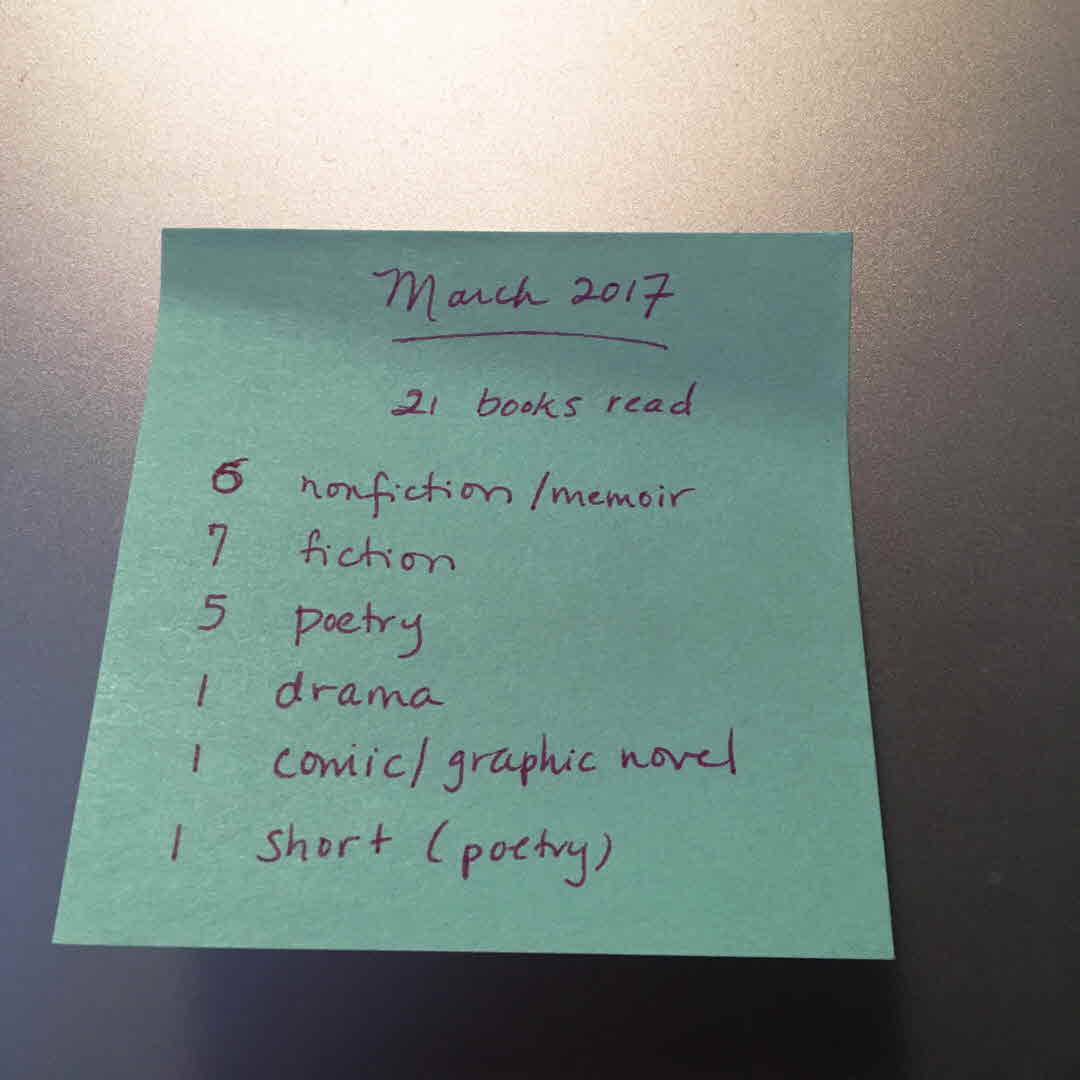 March 2017
21 books read
6 nonfiction/memoir
7 fiction
5 poetry
1 drama
1 comic/graphic novel
1 short (poetry)